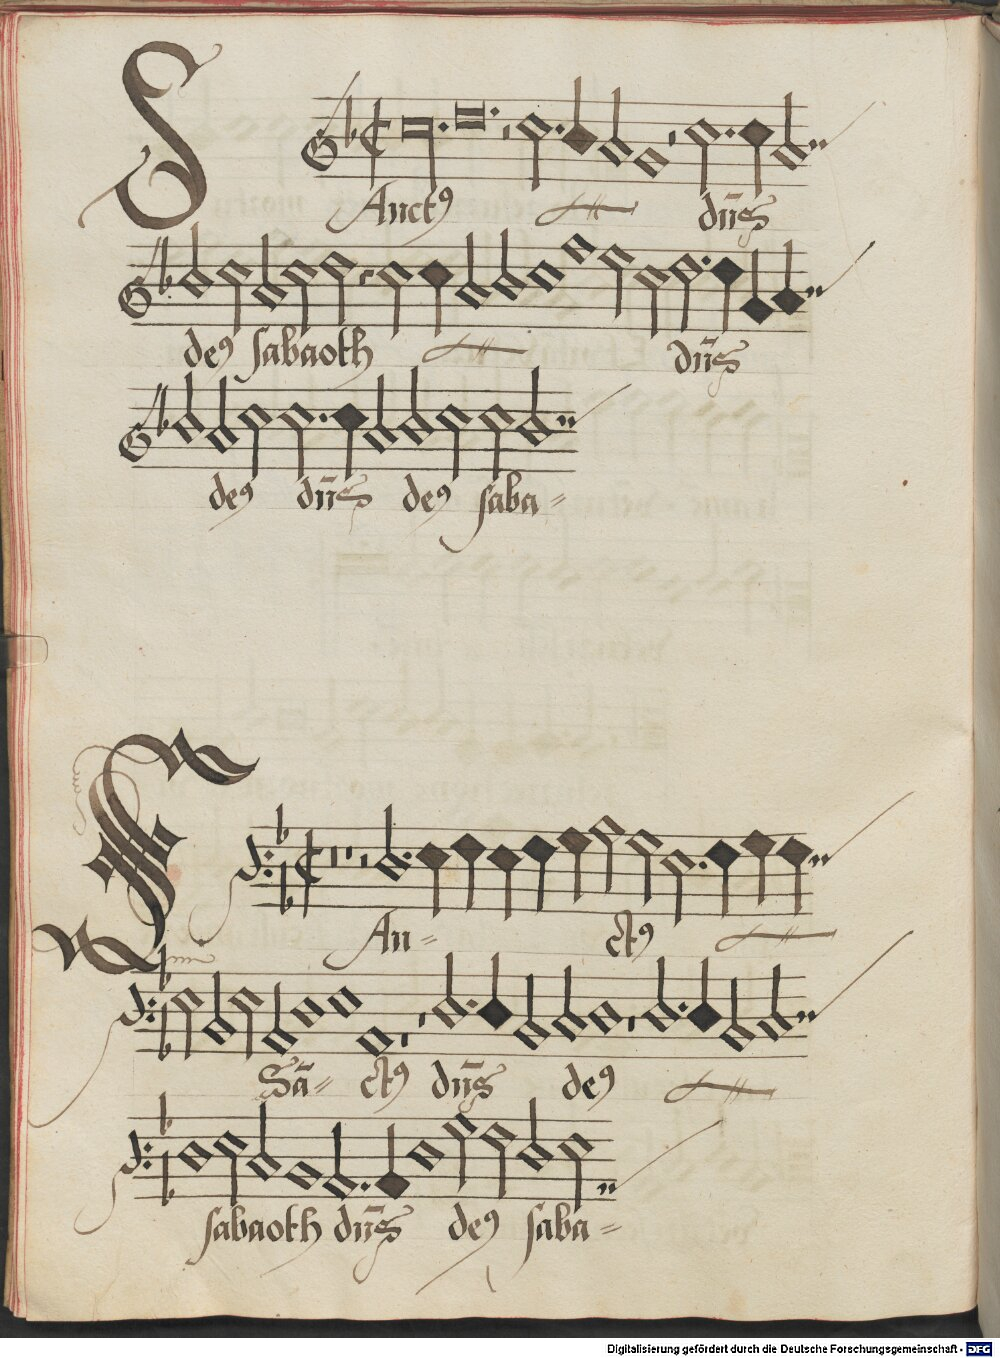 SAnctꝰ dn̄s
deꝰ sabaoth dn̄s
deꝰ dn̄s deꝰ saba=
SAn= ctꝰ
Sā= ctꝰ dn̄s deꝰ
sabaoth dn̄s deꝰ saba=
Digitalisierung gefördert durch die Deutsche Forschungsgemeinschaft - DFG